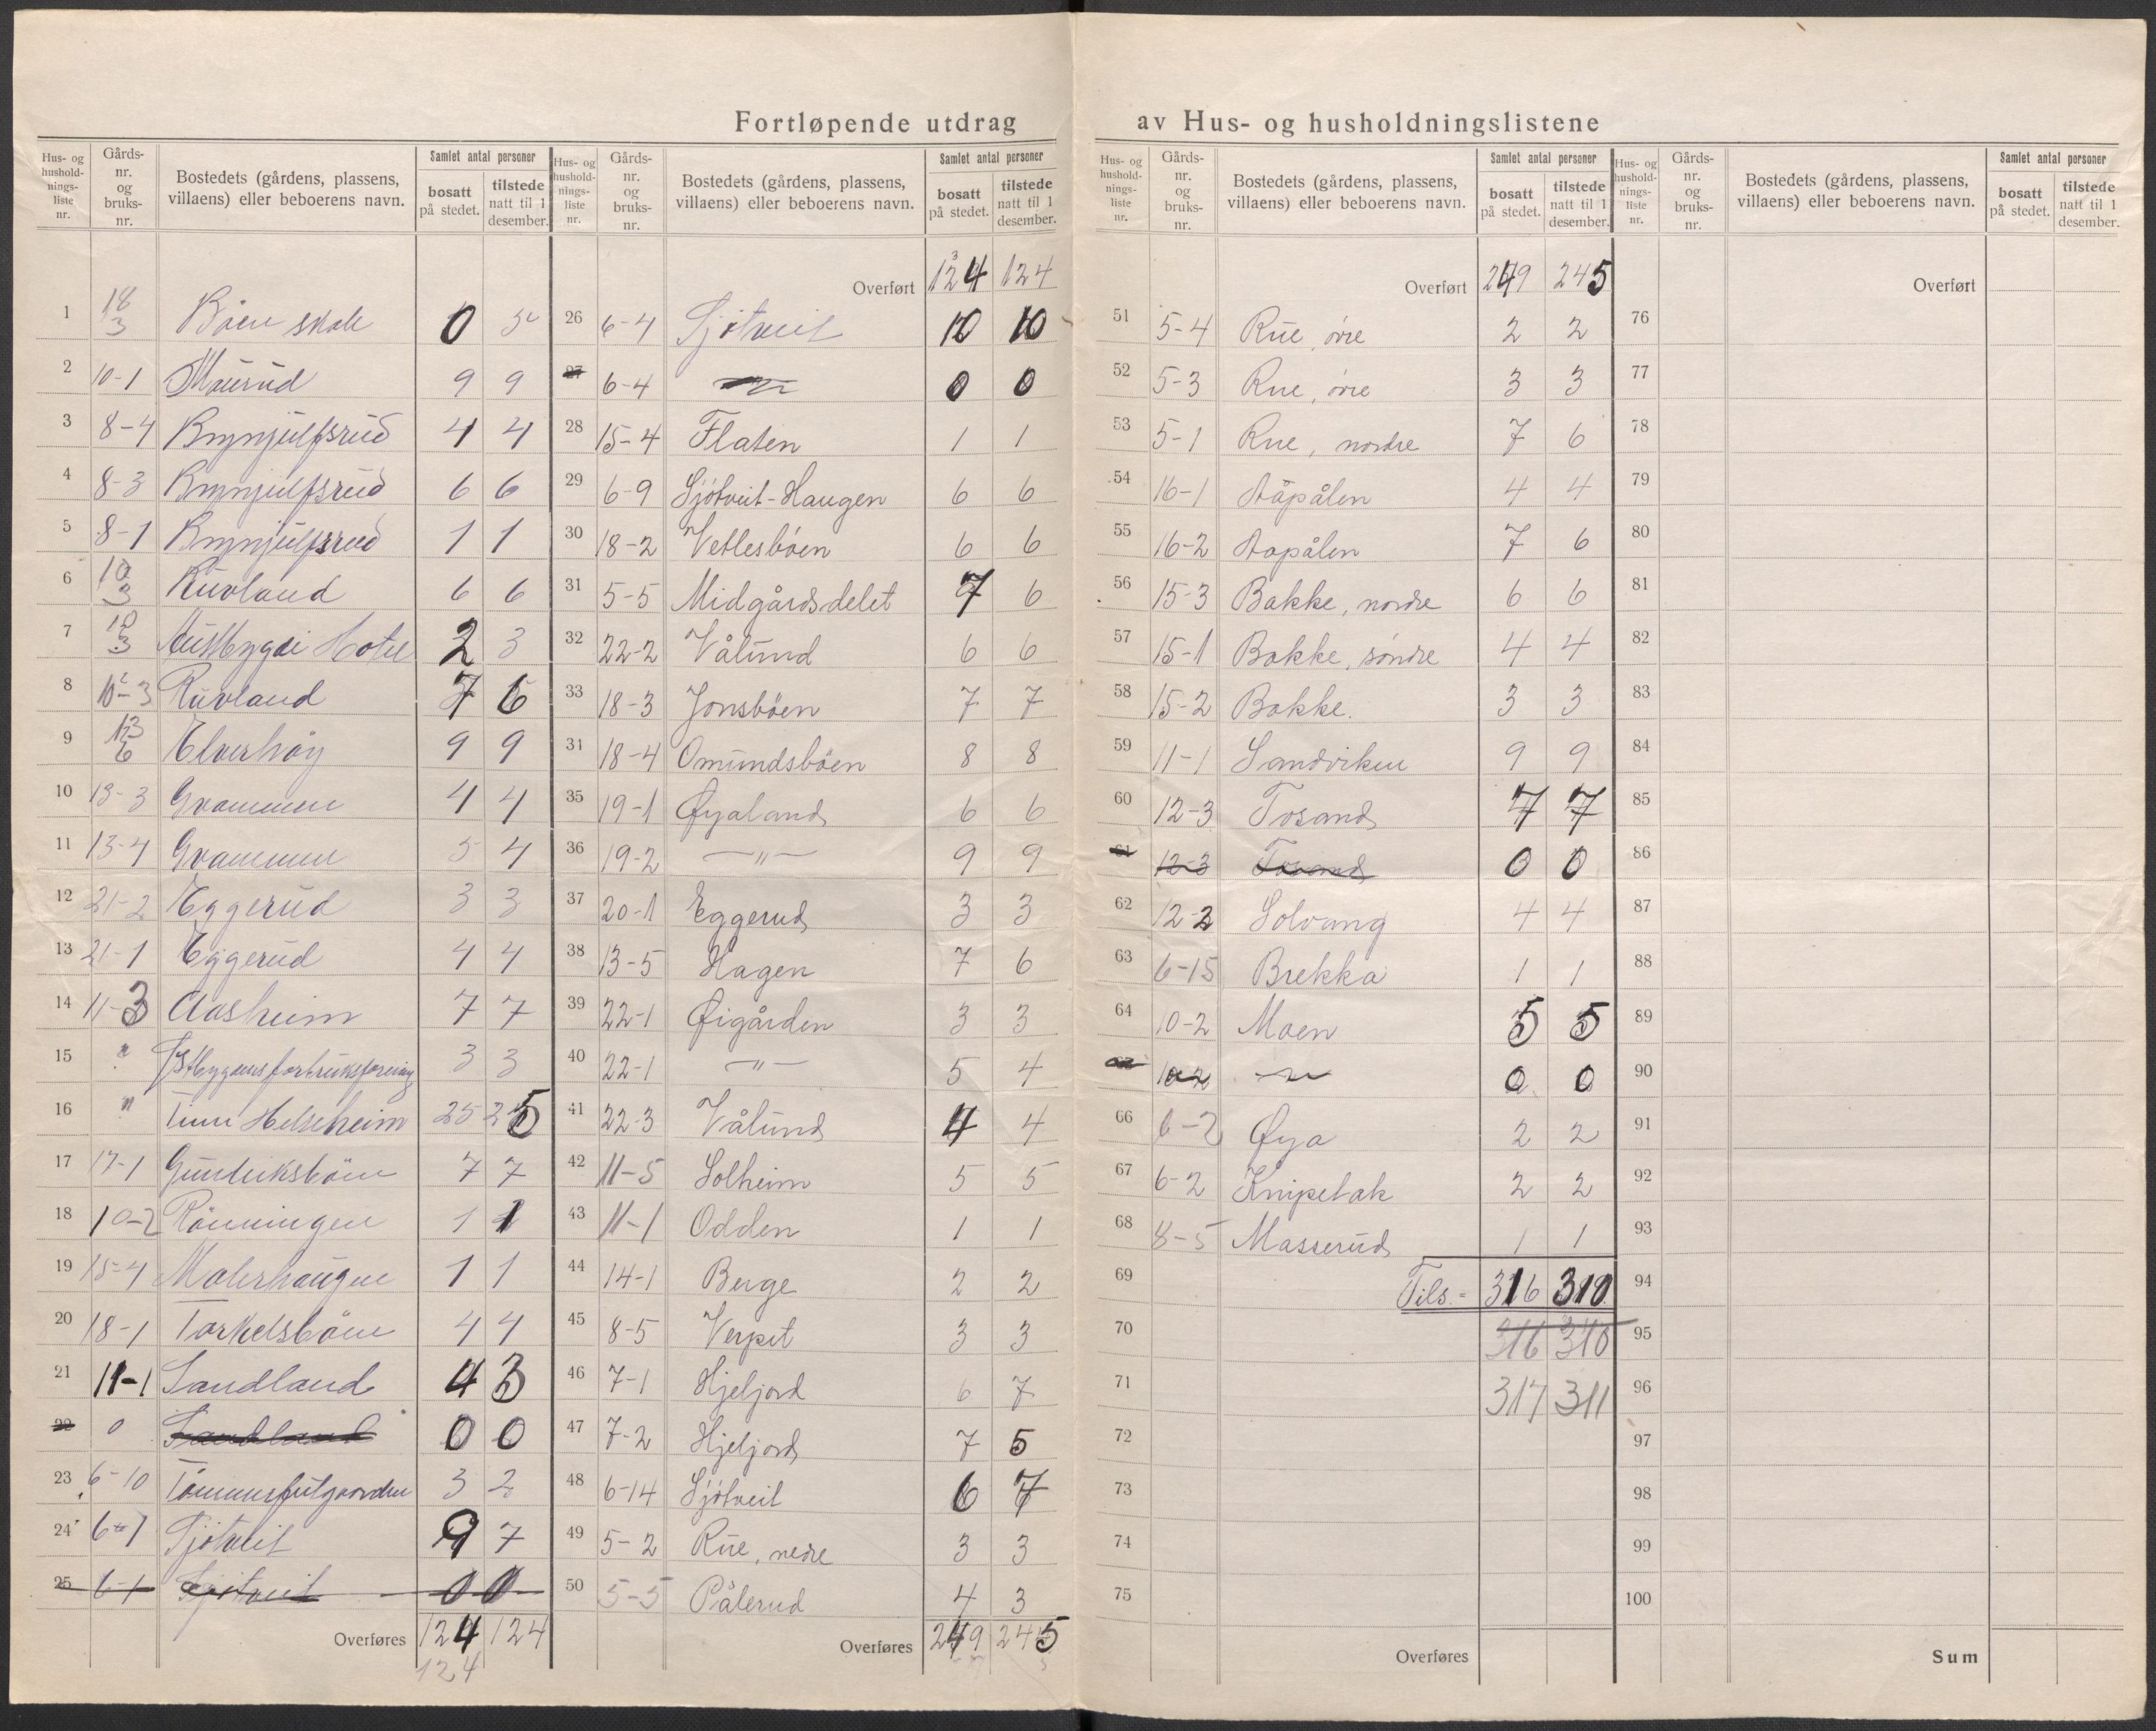 Fortløpende utdrag av Hus- og husholdningslistene
Hus- og hushold-nings-liste nr. | Gårds-nr. og bruks-nr. | Bostedets (gårdens, plassens, villaens) eller beboerens navn. | Samlet antal personer | bosatt på stedet. | tilstede natt til 1 desember.
1 18/3 Böen skole 0 5
2 10-1 Maurud 9 9
3 8-4 Brynjulfsrud 4 4
4 8-3 Brynjulfsrud 6 6
5 8-1 Brynjulfsrud 1 1
6 10/3 Ruvland 6 6
7 10/3 Austbygdi Hotel 2 3
8 10-3 Ruvland 7 6
9 13/6 Elverhöy 9 9
10 13-3 Gvammen 4 4
11 13-4 Gvammen 5 4
12 21-2 Eggerud 3 3
13 21-1 Eggerud 4 4
14 11-3 Aasheim 7 7
15 " 3 3
16 " Tinn Helseheim 25 25
17 17-1 Gunleiksböen 7 7
18 10-2 Rönningen 1 1
19 15-4 Malerhaugen 1 1
20 18-1 Torkelsböen 4 4
21 11-1 Sandland 4 3
22 0 Sandland 0 0
23 6-10 3 2
24 6-1 Sjötveit 9 7
25 6-1 Sjötveit 0 0
Overføres 124 124
124
Hus- og hushold-nings-liste nr. | Gårds-nr. og bruks-nr. | Bostedets (gårdens, plassens, villaens) eller beboerens navn. | Samlet antal personer | bosatt på stedet. | tilstede natt til 1 desember.
Overført 124 124
26 6-4 Sjötveit 10 10
27 6-4 —"— 0 0
28 15-4 Flaten 1 1
29 6-9 Sjötveit-Haugen 6 6
30 18-2 Vetlesböen 6 6
31 5-5 Midgårdsdelet 7 6
32 22-2 Vålund 6 6
33 18-3 Jonsböen 7 7
31 18-4 Omundsböen 8 8
35 19-1 Øyaland 6 6
36 19-2 —"— 9 9
37 20-1 Eggerud 3 3
38 13-5 Hagen 7 6
39 22-1 Øigården 3 3
40 22-1 —"— 5 4
41 22-3 Vålund 4 4
42 11-5 Solheim 5 5
43 11-1 Odden 1 1
44 14-1 Berge 2 2
45 8-5 Verpit 3 3
46 7-1 Hjeljord 6 7
47 7-2 Hjeljord 7 5
48 6-14 Sjötveit 6 7
49 5-2 Rue, nedre 3 3
50 5-5 Pålerud 4 3
Overføres 249 245
Hus- og hushold-nings-liste nr. | Gårds-nr. og bruks-nr. | Bostedets (gårdens, plassens, villaens) eller beboerens navn. | Samlet antal personer | bosatt på stedet. | tilstede natt til 1 desember.
Overført 249 245
51 5-4 Rue, övre 2 2
52 5-3 Rue, övre 3 3
53 5-1 Rue, nordre 7 6
54 16-1 Aåpålen 4 4
55 16-2 Aapålen 7 6
56 15-3 Bakke, nordre 6 6
57 15-1 Bakke, söndre 4 4
58 15-2 Bakke. 3 3
59 11-1 Sandviken 9 9
60 12-3 Tosand 7 7
61 12-3 Tosand 0 0
62 12-2 Solvang 4 4
63 6-15 Brekka 1 1
64 10-2 Moen 5 5
10-2 —"— 0 0
66 6-2 Øya 2 2
67 6-2 Knipetak 2 2
68 8-5 Masserud 1 1
69 Tils.= 316 310
70 316 310
71 317 311
72
73
74
75
Overføres
Hus- og hushold-nings-liste nr. | Gårds-nr. og bruks-nr. | Bostedets (gårdens, plassens, villaens) eller beboerens navn. | Samlet antal personer | bosatt på stedet. | tilstede natt til 1 desember.
Overført
76
77
78
79
80
81
82
83
84
85
86
87
88
89
90
91
92
93
94
95
96
97
98
99
100
Sum